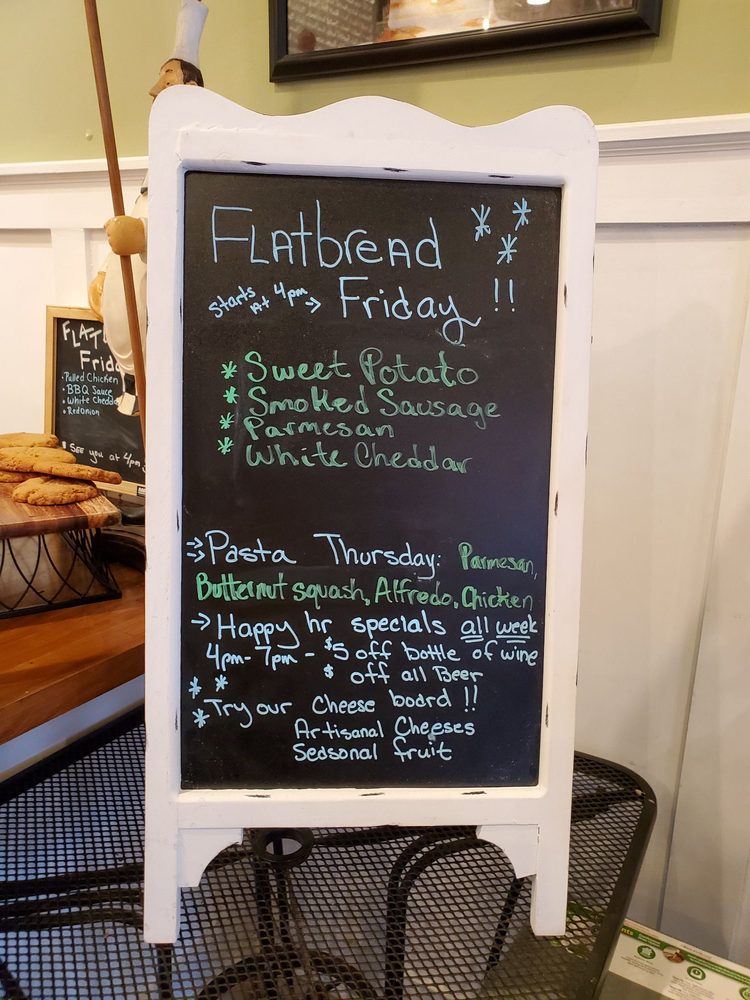 FLAtbreAD
starts At 4pm → Friday !!
* Sweet Potato
* Smoked Sausage
* Parmesan
* White Cheddar
⇒ Pasta Thursday: Parmesan,
Butternut squash, Alfredo, Chicken
→ Happy hr specials all week
4pm-7pm - $5 off bottle of wine
$ off all Beer
* Try our Cheese board !!
Artisanal Cheeses
Sedsonal fruit
Frida
• Pulled Chicken
• BBQ Sauce
• White Chedda
• Red Onion
See you at 4pm